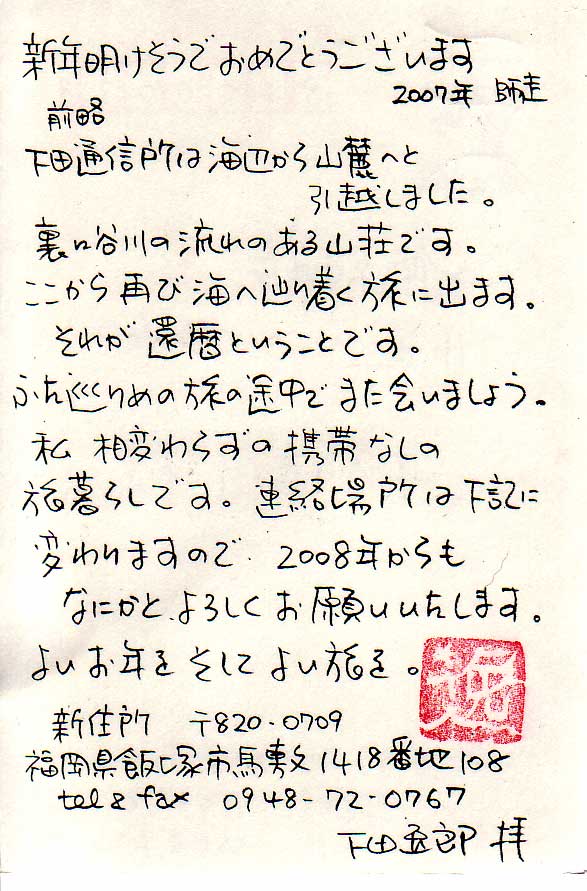 新年明けそうでおめでとうございます
2007年 師走
前略
下田通信所は海辺から山麓へと
引越しました。
裏に谷川の流れのある山荘です。
ここから再び海へ辿り着く旅に出ます。
それが還暦ということです。
ふた巡りめの旅の途中でまた会いましょう。
私 相変わらずの携帯なしの
旅暮らしです。連絡場所は下記に
変わりますので 2008年からも
なにかと、よろしくお願いいたします。
よいお年を そして よい旅を。
新住所 〒820-0709
福岡県飯塚市馬敷1418番地108
tel & fax 0948-72-0767
下田 郎 拝